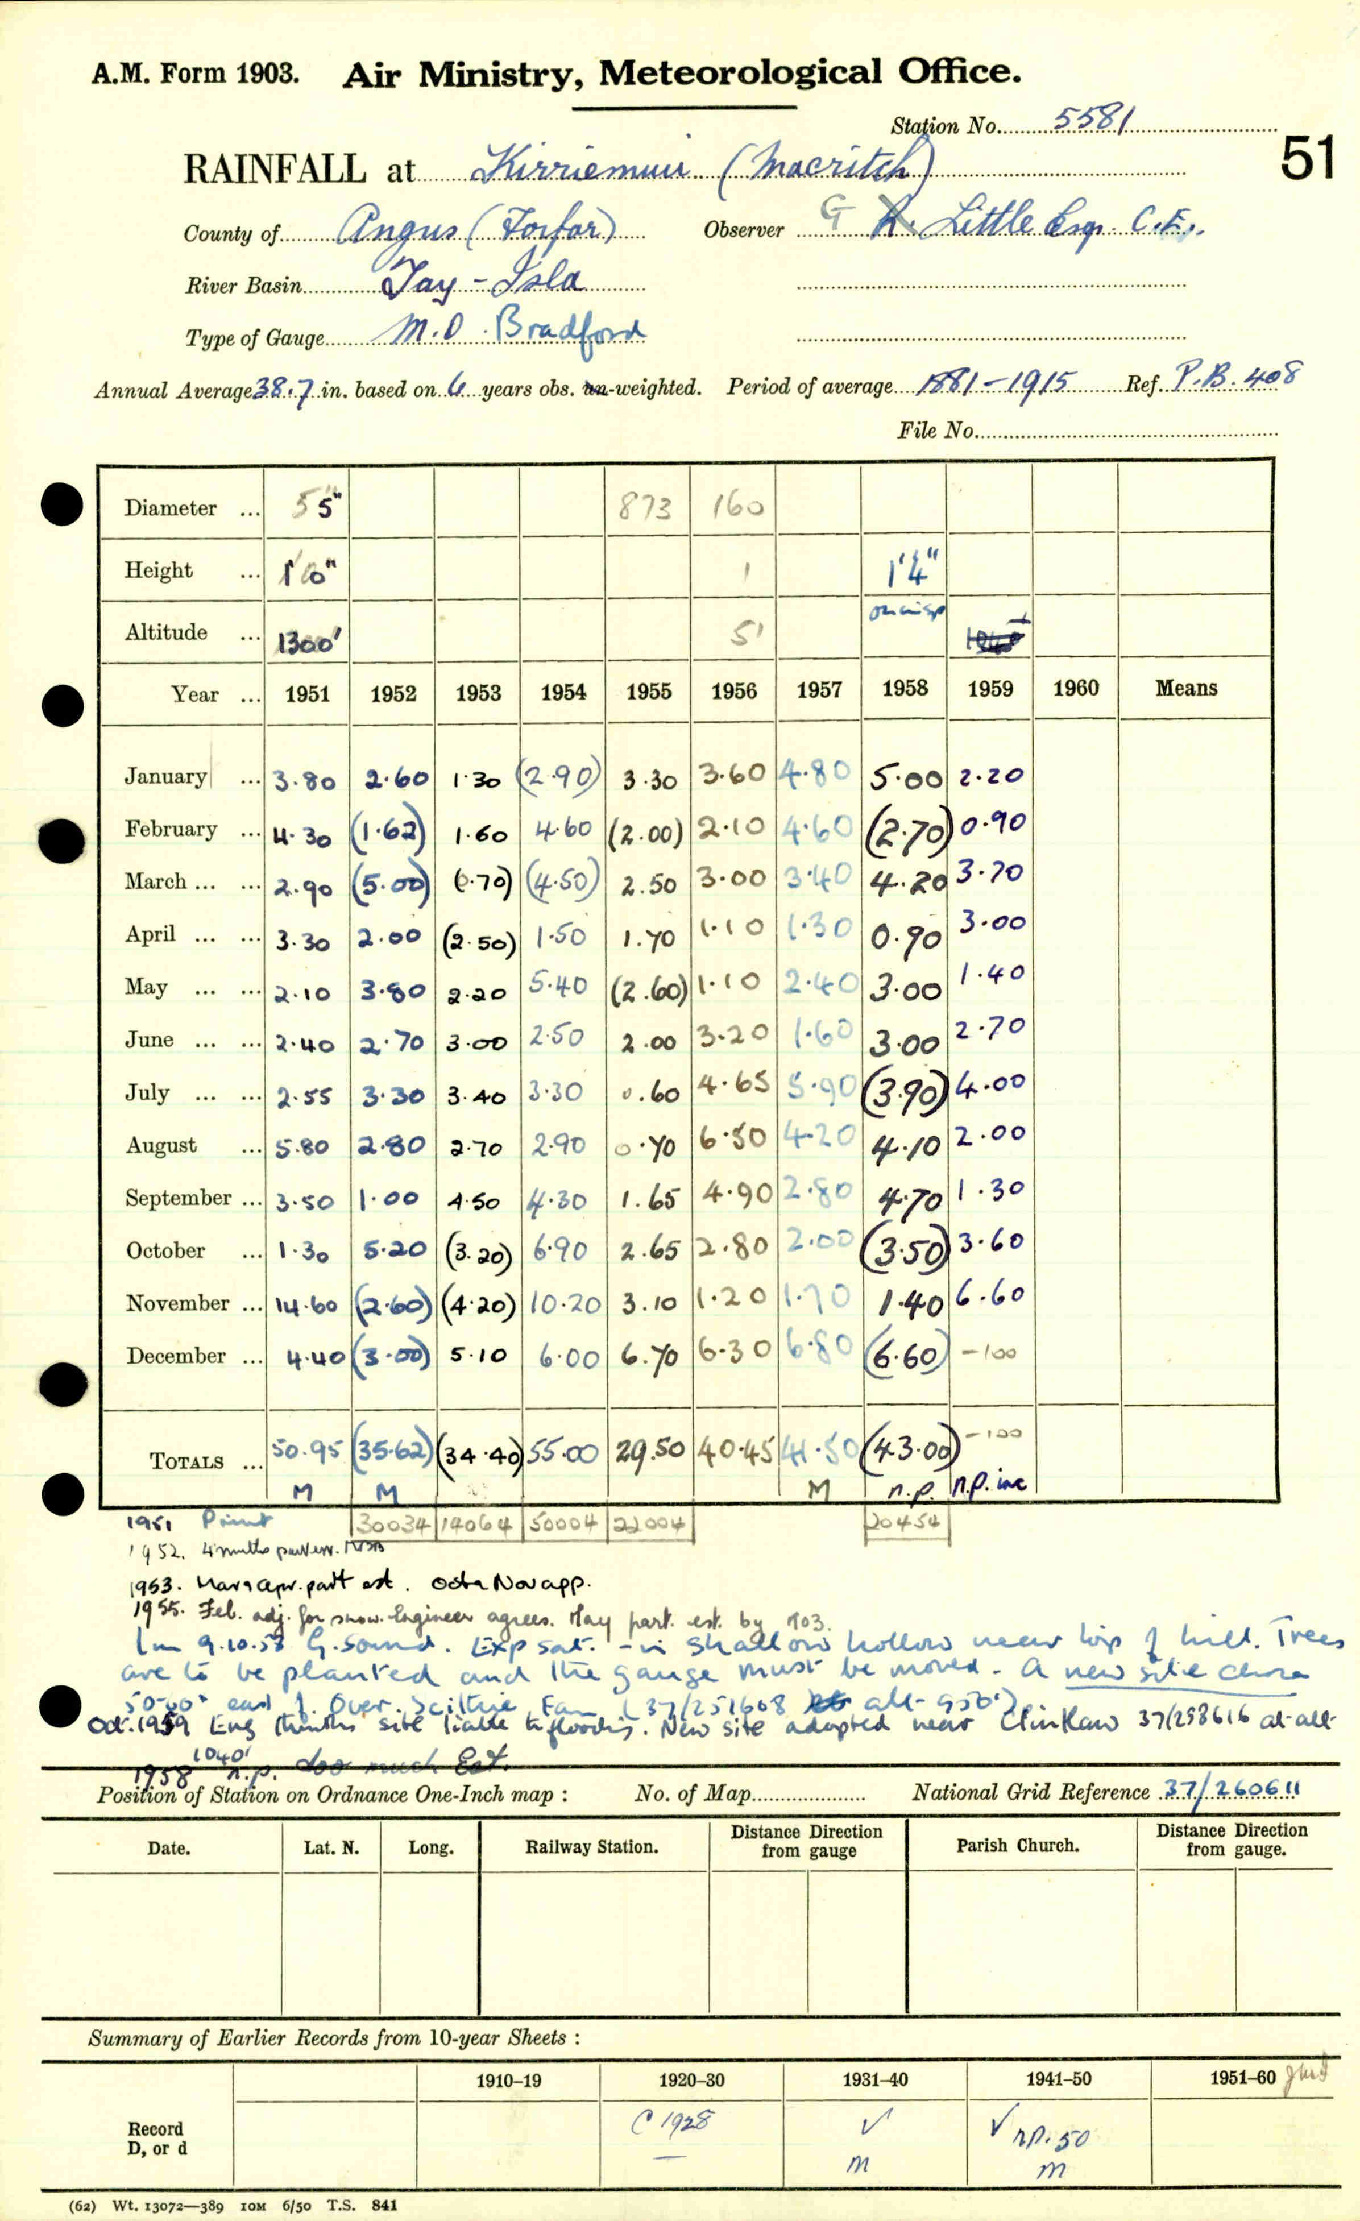 A.M. Form 1903. Air Ministry, Meteorological Office.
Station No. 5581
51
RAINFALL at Kirriemuir (Macritch)
County of Angus (Forfar) Observer G R. Little Esq. C.E.
River Basin Tay - Isla
Type of Gauge M.O. Bradford
Annual Average 38.7 in. based on 6 years obs. un-weighted. Period of average 1881-1915 Ref. P.B. 408
File No.
Diameter ... 5" 873 160
Height ... 1'0" 1 1'4"
Altitude ... 1300' 51
Year ... 1951 1952 1953 1954 1955 1956 1957 1958 1959 1960 Means
January ... 3.80 2.60 1.30 (2.90) 3.30 3.60 4.80 5.00 2.20
February ... 4.30 (1.62) 1.60 4.60 (2.00) 2.10 4.60 (2.70) 0.90
March ... ... 2.90 (5.00) (0.70) (4.50) 2.50 3.00 3.40 4.20 3.70
April ... ... 3.30 2.00 (2.50) 1.50 1.70 1.10 1.30 0.90 3.00
May ... ... 2.10 3.80 2.20 5.40 (2.60) 1.10 2.40 3.00 1.40
June ... ... 2.40 2.70 3.00 2.50 2.00 3.20 1.60 3.00 2.70
July ... ... 2.55 3.30 3.40 3.30 0.60 4.65 5.90 (3.90) 4.00
August ... 5.80 2.80 2.70 2.90 0.70 6.50 4.20 4.10 2.00
September ... 3.50 1.00 4.50 4.30 1.65 4.90 2.80 4.70 1.30
October ... 1.30 5.20 (3.20) 6.90 2.65 2.80 2.00 (3.50) 3.60
November ... 14.60 (2.60) (4.20) 10.20 3.10 1.20 1.70 1.40 6.60
December ... 4.40 (3.00) 5.10 6.00 6.70 6.30 6.80 (6.60) -100
TOTALS ... 50.95 (35.62) (34.40) 55.00 29.50 40.45 41.50 (43.00) -100
M M M n.p. n.p. inc
1951 Print 30034 14064 50004 22004 20454
1952. 4 months part
1953. Mar & Apr. part est. Oct & Nov app.
1955. Feb. adj. for snow. Engineer agrees. May part. est. by M03.
Im 9.10.58 G. Sound. Exp sat. - in shallow hollow near top of hill. Trees
are to be planted and the gauge must be moved. A new site chose
50-60° east of Over Scithie Fm (37/251608 alt- 950')
Oct. 1959 Eng thinks site liable to flooding. New site adopted near Clinkaw 37/258616 at alt-
1040'
1958 n.p. too much Est.
Position of Station on Ordnance One-Inch map : No. of Map National Grid Reference 37/260611
Date. Lat. N. Long. Railway Station. Distance Direction from gauge Parish Church. Distance Direction from gauge.
Summary of Earlier Records from 10-year Sheets :
1910-19 1920-30 1931-40 1941-50 1951-60
Record C 1928 ✓ ✓ n.p. 50
D, or d — M M
(62) Wt. 13072—389 10M 6/50 T.S. 841